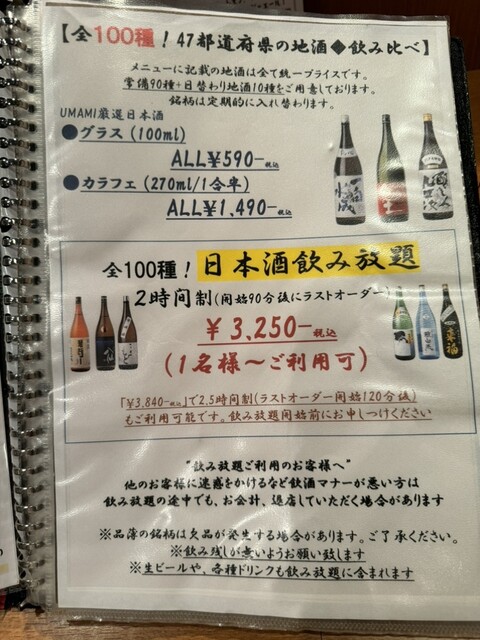 【全100種！47都道府県の地酒◆飲み比べ】
メニューに記載の地酒は全て統一プライスです。
常備90種+日替わり地酒10種をご用意しております。
銘柄は定期的に入れ替わります。
UMAMI厳選日本酒
●グラス(100ml)
ALL¥590-税込
●カラフェ(270ml/1合半)
ALL¥1,490-税込
全100種！日本酒飲み放題
2時間制(開始90分後にラストオーダー)
¥3,250-税込
(1名様〜ご利用可)
「¥3,840-税込」で2.5時間制(ラストオーダー開始120分後)
もご利用可能です。飲み放題開始前にお申しつけください
"飲み放題ご利用のお客様へ"
他のお客様に迷惑をかけるなど飲酒マナーが悪い方は
飲み放題の途中でも、お会計、退店していただく場合があります
※品薄の銘柄は欠品が発生する場合があります。ご了承ください。
※飲み残しが無いようお願い致します
※生ビールや、各種ドリンクも飲み放題に含まれます